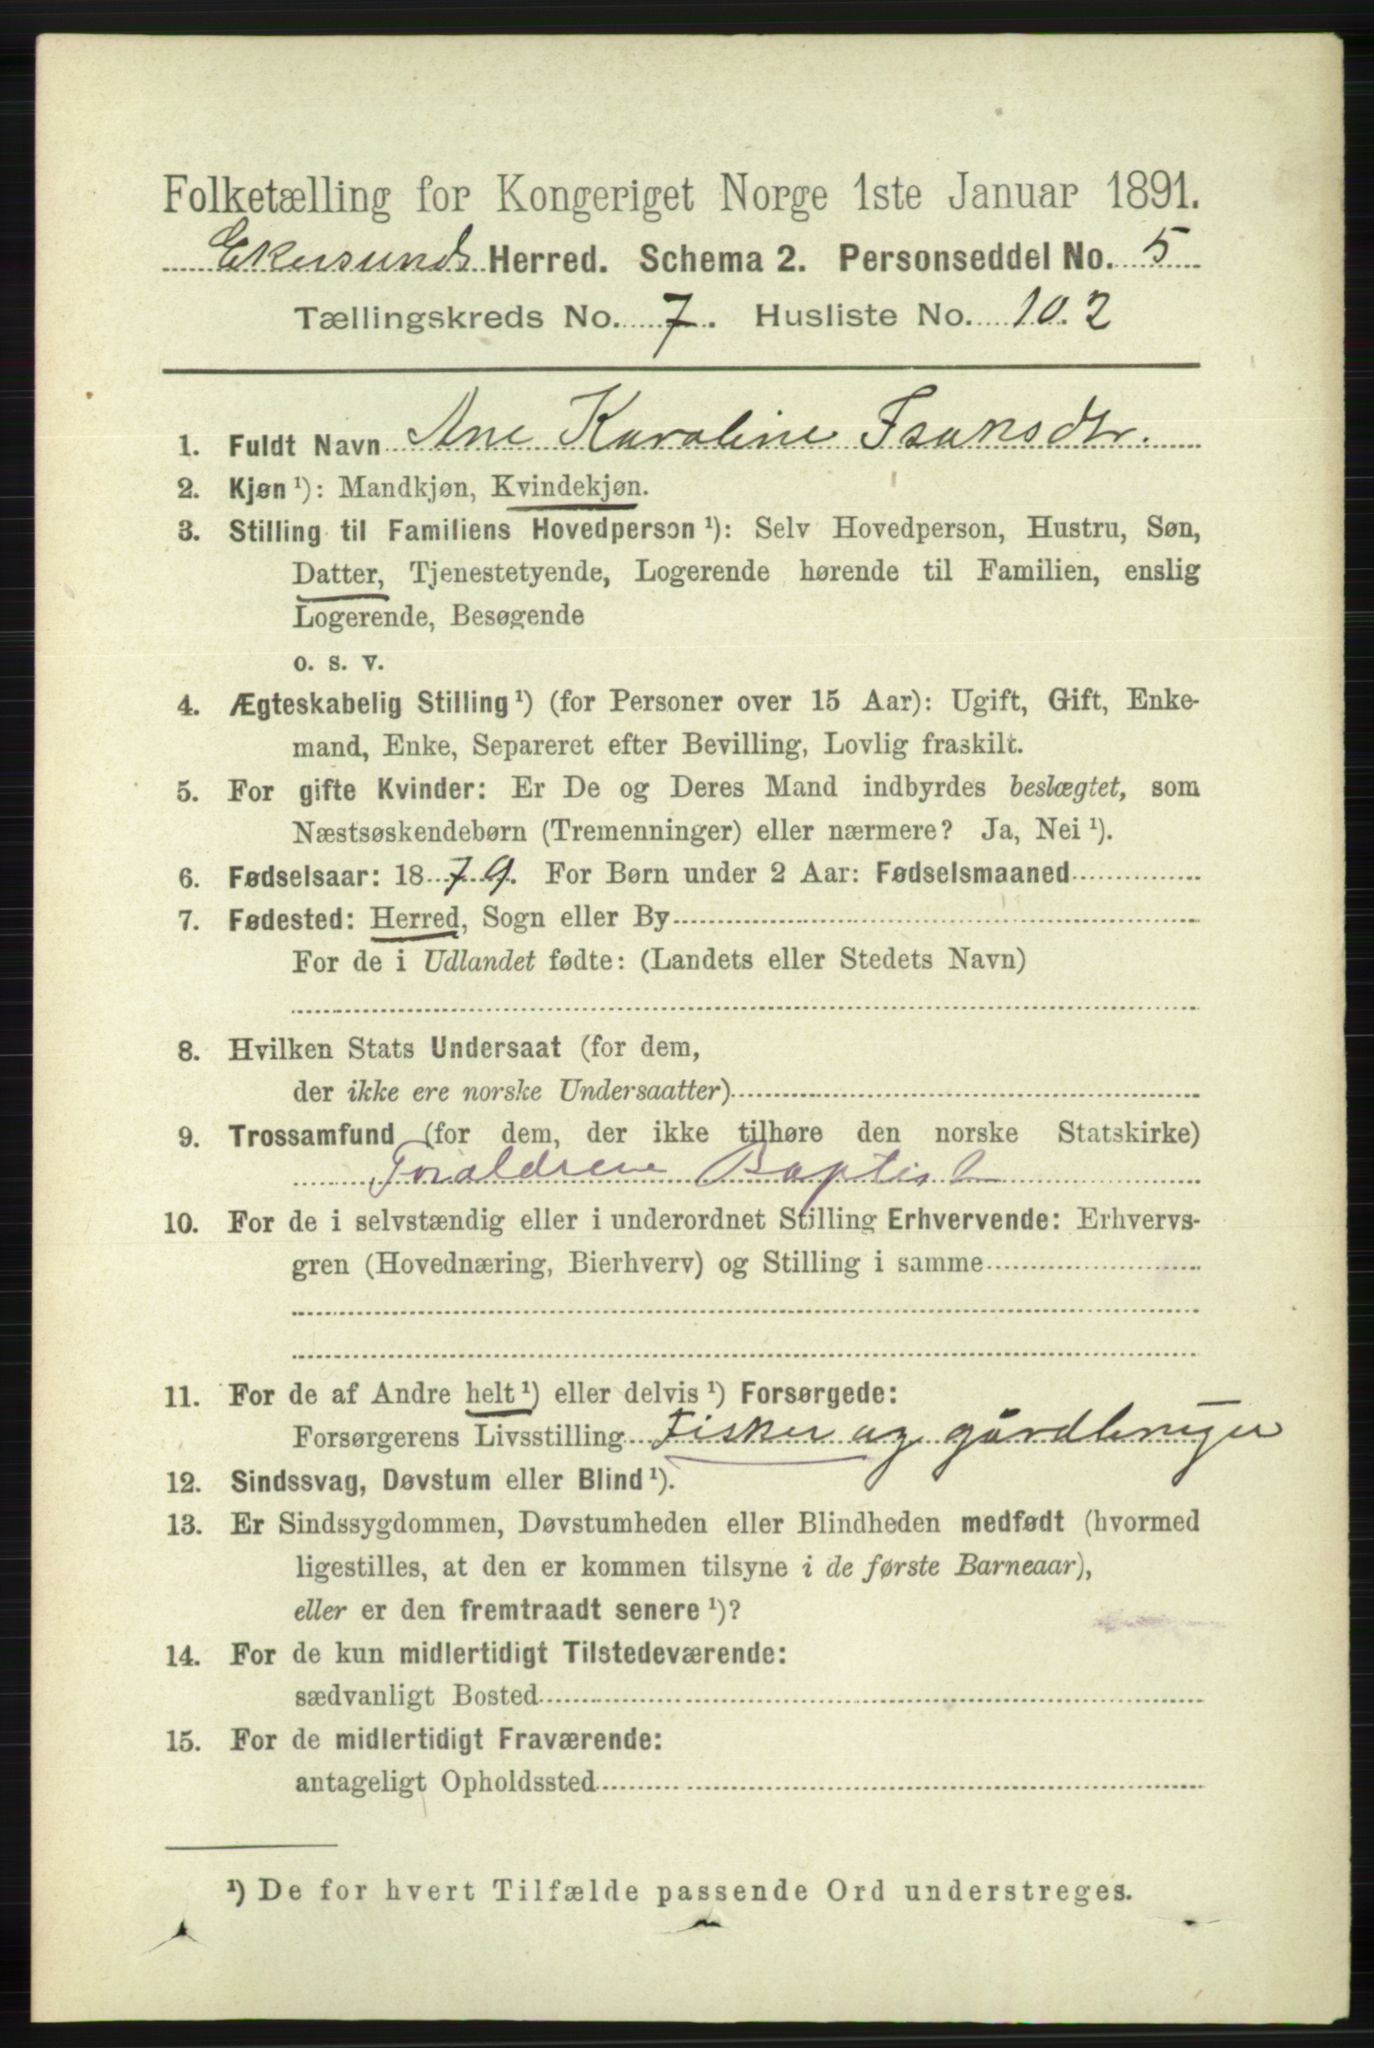 Folketælling for Kongeriget Norge 1ste Januar 1891.
Ekersunds Herred. Schema 2. Personseddel No. 5
Tællingskreds No. 7. Husliste No. 102
1. Fuldt Navn Ane Karoline Fransdtr.
2. Kjøn ¹): Mandkjøn, Kvindekjøn.
3. Stilling til Familiens Hovedperson ¹): Selv Hovedperson, Hustru, Søn,
Datter, Tjenestetyende, Logerende hørende til Familien, enslig
Logerende, Besøgende
o. s. v.
4. Ægteskabelig Stilling ¹) (for Personer over 15 Aar): Ugift, Gift, Enke-
mand, Enke, Separeret efter Bevilling, Lovlig fraskilt.
5. For gifte Kvinder: Er De og Deres Mand indbyrdes beslægtet, som
Næstsøskendebørn (Tremenninger) eller nærmere? Ja, Nei ¹).
6. Fødselsaar: 1879. For Børn under 2 Aar: Fødselsmaaned
7. Fødested: Herred, Sogn eller By
For de i Udlandet fødte: (Landets eller Stedets Navn)
8. Hvilken Stats Undersaat (for dem,
der ikke ere norske Undersaatter)
9. Trossamfund (for dem, der ikke tilhøre den norske Statskirke)
Foraldrene Baptist
10. For de i selvstændig eller i underordnet Stilling Erhvervende: Erhvervs-
gren (Hovednæring, Bierhverv) og Stilling i samme
11. For de af Andre helt ¹) eller delvis ¹) Forsørgede:
Forsørgerens Livsstilling Fisker og gårdbruger
12. Sindssvag, Døvstum eller Blind ¹).
13. Er Sindssygdommen, Døvstumheden eller Blindheden medfødt (hvormed
ligestilles, at den er kommen tilsyne i de første Barneaar),
eller er den fremtraadt senere ¹)?
14. For de kun midlertidigt Tilstedeværende:
sædvanligt Bosted
15. For de midlertidigt Fraværende:
antageligt Opholdssted
¹) De for hvert Tilfælde passende Ord understreges.